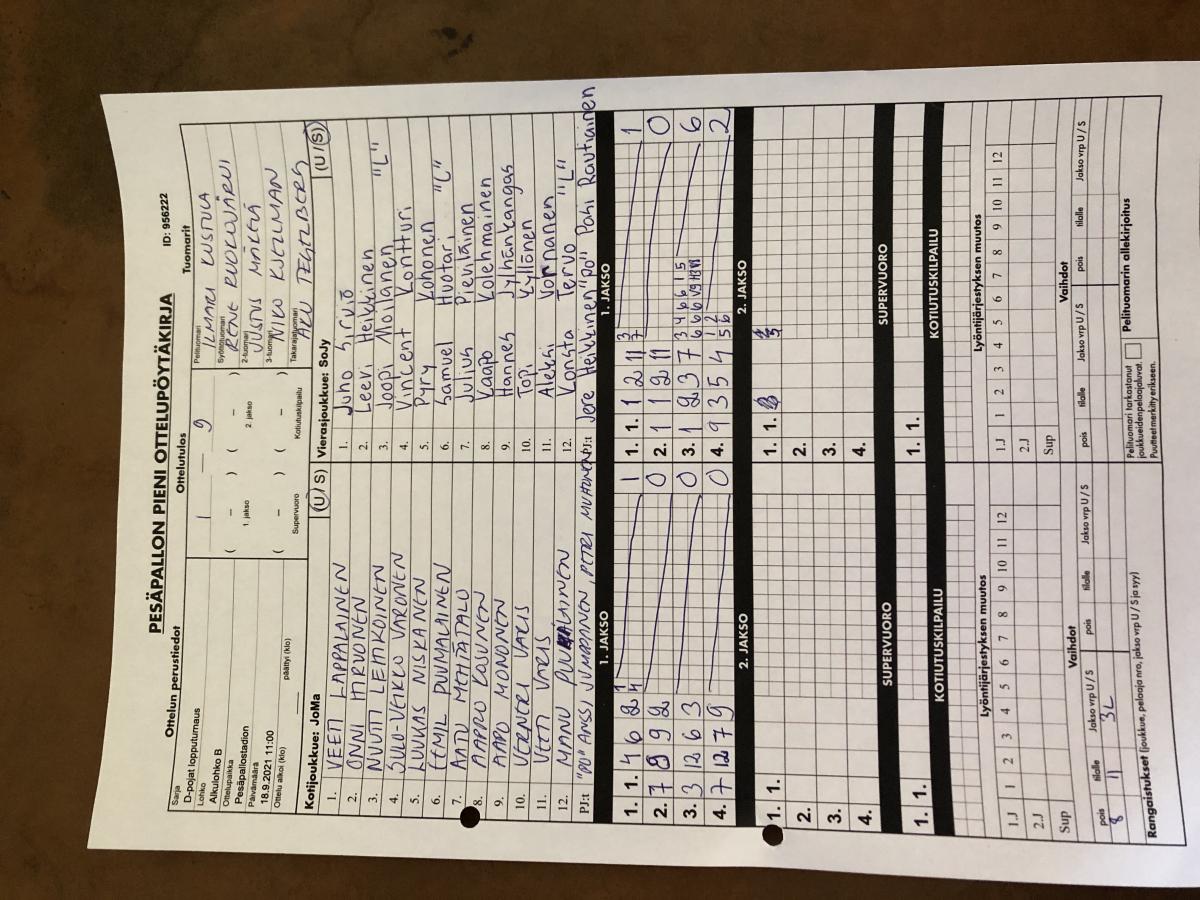 PESÄPALLON PIENI OTTELUPÖYTÄKIRJA
ID: 956222
Ottelun perustiedot
Ottelutulos
Tuomarit
Sarja
D-pojat lopputurnaus
Lohko
Alkulohko B
Ottelupaikka
Pesäpallostadion
Päivämäärä
18.9.2021 11:00
Ottelu alkoi (klo)
päättyi (klo)
1 — 9
( – ) ( – )
1. jakso
2. jakso
( – ) ( – )
Supervuoro
Kotiutuskilpailu
Pelituomari
ILMARI KUSTULA
Syöttötuomari
RENE RUOKOJÄRVI
2-tuomari
JUSTUS MÄKELÄ
3-tuomari
Takarajatuomari
Kotijoukkue: JoMa
(U / S)
1. VEETI LAPPALAINEN
2. ONNI HIRVONEN
3. NUUTTI LEMKOINEN
4. SULO-VEIKKO VARONEN
5. LUUKAS NISKANEN
6. EEMIL PUUMALAINEN
7. AATU MEHTÄTALO
8. AAPRO KOSUNEN
9. AARO MONONEN
10. VERNERI VARIS
11. VEETI VARIS
12. MANU
PJ:t "PO" ANSSI JUMPPANEN, PETRI MUHONEN
Vierasjoukkue: SoJy
(U / S)
1. Juho Sirviö
2. Leevi Heikkinen
3. Joopi Moilanen "L"
4. Vincent Kontturi
5. Pyry Kohonen
6. Samuel Huotari "L"
7. Julius Pientäinen
8. Kaapo Kolehmainen
9. Hannes Jylhänkangas
10. Topi Kyllönen
11. Aleksi Vornanen
12. Konsta Tervo "L"
PJ:t Jere Heikkinen "PO" Pahi Rautiainen
1. JAKSO
1. JAKSO
1. 1. 4 6 2 4 1 1
2. 7 8 9 2 0
3. 3 12 6 3 0
4. 7 12 7 9 0
1. 1. 1 2 11 7 3 1
2. 1 1 2 11 0
3. 1 2 3 7 6
4. 9 3 5 4 5 6 1 2 2
2. JAKSO
2. JAKSO
1. 1.
2.
3.
4.
1. 1.
2.
3.
4.
SUPERVUORO
SUPERVUORO
1. 1.
1. 1.
KOTIUTUSKILPAILU
KOTIUTUSKILPAILU
Lyöntijärjestyksen muutos
Lyöntijärjestyksen muutos
1.J 1 2 3 4 5 6 7 8 9 10 11 12
2.J
Sup
1.J 1 2 3 4 5 6 7 8 9 10 11 12
2.J
Sup
Vaihdot
Vaihdot
pois tilalle Jakso vrp U / S pois tilalle Jakso vrp U / S
8 11 3L
pois tilalle Jakso vrp U / S pois tilalle Jakso vrp U / S
Rangaistukset (joukkue, pelaaja nro, jakso vrp U / S ja syy)
Pelituomari tarkastanut
joukkueidenpelaajaluvat.
Puutteet merkitty erikseen.
Pelituomarin allekirjoitus